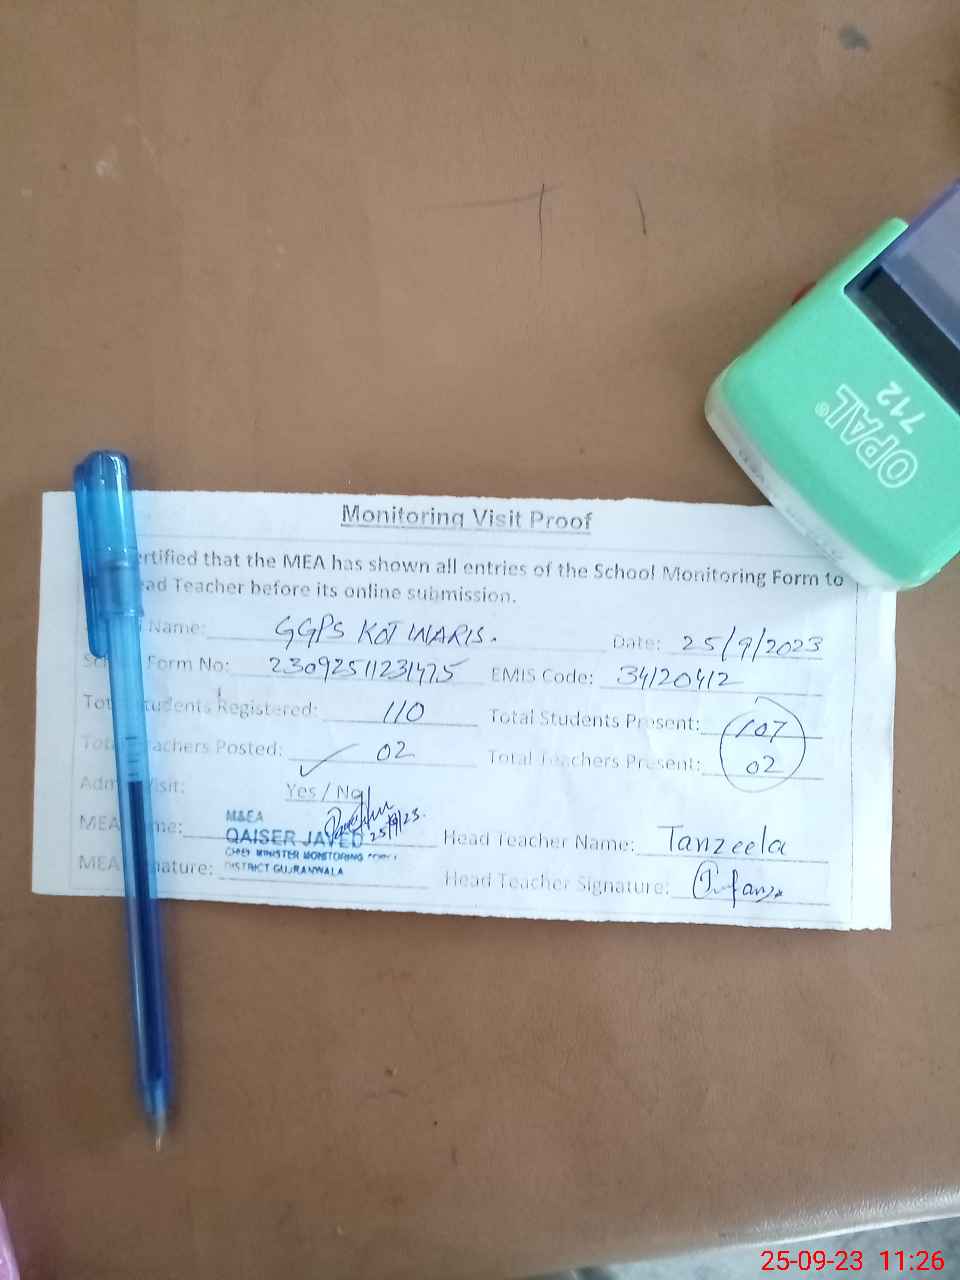 OPAL® 712
Monitoring Visit Proof
ertified that the MEA has shown all entries of the School Monitoring Form to
ead Teacher before its online submission.
Name: GGPS KOT WARIS. Date: 25/9/2023
Form No: EMIS Code: 34120412
Students Registered: 110 Total Students Present: 107
Teachers Posted: 02 Total Teachers Present: 02
Visit: Yes / No
M&EA
QAISER JAVED 25/9/23.
CHIEF MINISTER MONITORING FORCE
DISTRICT GUJRANWALA
MEA Name: Head Teacher Name: Tanzeela
MEA Signature: Head Teacher Signature:
25-09-23 11:26